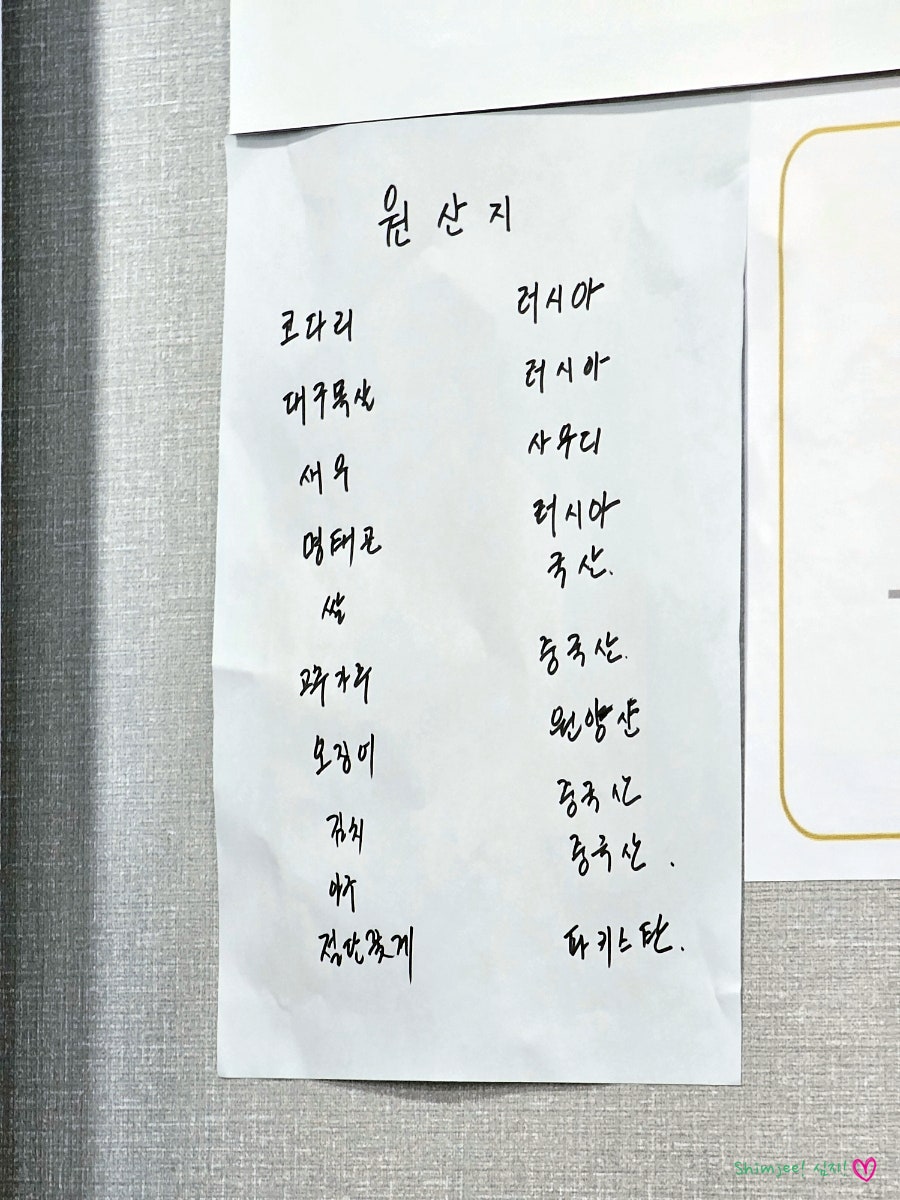 원산지
코다리 러시아
대구목살 러시아
새우 사우디
명태곤 러시아
쌀 국산.
고추가루 중국산.
오징어 원양산
김치 중국산
아구 중국산.
절단꽃게 파키스탄.
Shimjee! 심지!